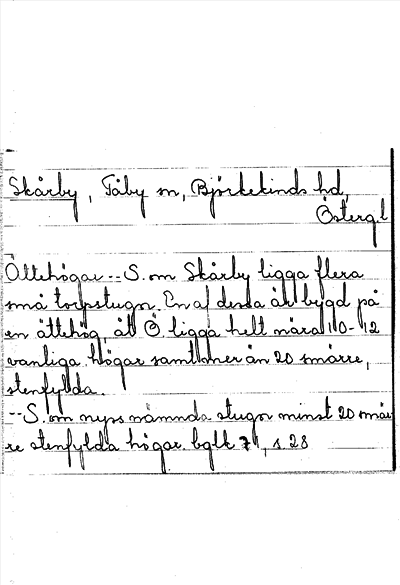 Skårby, Tåby sn, Björkekinds hd,
Östergl
Ättehögar -- S. om Skårby ligga flera
små torpstugor. En af dessa är bygd på
en ättehög, åt Ö. ligga helt nära 10-12
vanliga högar samt mer än 20 smärre,
stenfyllda.
-- S. om nyss nämnda stugor minst 20 smär
re stenfyllda högar. bglk 71, s. 28